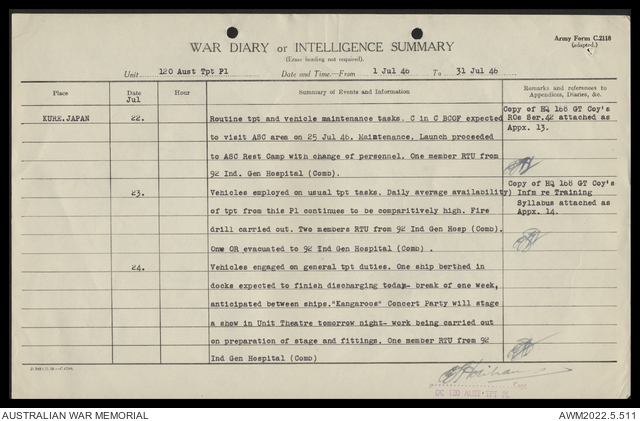 Army Form C.2118
(adapted.)
WAR DIARY or INTELLIGENCE SUMMARY
(Erase heading not required).
Unit 120 Aust Tpt Pl Date and Time—From 1 Jul 46 To 31 Jul 46
Place
Date
Jul
Hour
Summary of Events and Information
Remarks and references to
Appendices, Diaries, &c.
KURE.JAPAN
22.
Routine tpt and vehicle maintenance tasks. C in C BCOF expected
to visit ASC area on 25 Jul 46. Maintenance. Launch proceeded
to ASC Rest Camp with change of personnel. One member RTU from
92 Ind. Gen Hospital (Comb).
Copy of HQ 168 GT Coy's
ROs Ser.42 attached as
Appx. 13.
23.
Vehicles employed on usual tpt tasks. Daily average availability)
of tpt from this Pl continues to be comparitively high. Fire
drill carried out. Two members RTU from 92 Ind Gen Hosp (Comb).
One OR evacuated to 92 Ind Gen Hospital (Comb) .
Copy of HQ 168 GT Coy's
Infm re Training
Syllabus attached as
Appx. 14.
24.
Vehicles engaged on general tpt duties. One ship berthed in
docks expected to finish discharging today- break of one week,
anticipated between ships."Kangaroos" Concert Party will stage
a show in Unit Theatre tomorrow night- work being carried out
on preparation of stage and fittings. One member RTU from 92
Ind Gen Hospital (Comb)
Capt
OC 120 AUST TPT PL
AUSTRALIAN WAR MEMORIAL
AWM2022.5.511